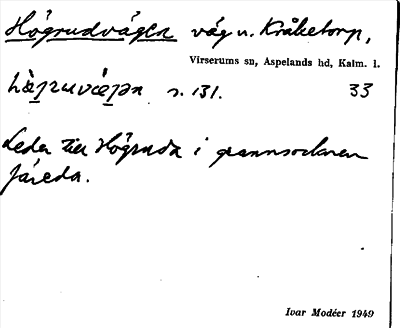 Högrudvägen väg u. Kråketorp,
Virserums sn, Aspelands hd, Kalm. l.
s. 131. 33
Leder till Högruda i grannsocknen
Järeda.
Ivar Modéer 1949